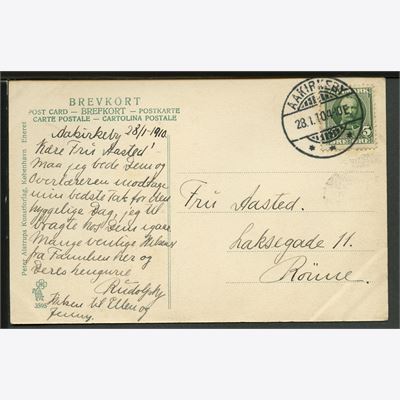 BREVKORT
POST CARD — BREFKORT — POSTKARTE
CARTE POSTALE — CARTOLINA POSTALE
AAKIRKEBY
28.1.10
5
Aakirkeby 28/1-1910.
Kære Fru Aasted!
Maa jeg bede Dem og
Overlæreren modtage
min bedste Tak for den
hyggelige Dag, jeg til
bragte hos Dem igaar.
Mange venlige Hilsner
fra Familien her og
Deres hengivne
Rudolph
Hilsen til Ellen og
Jenny.
Fru Aasted.
Laksegade 11.
Rönne.
Peter Alstrups Kunstforlag, København Eneret
3595